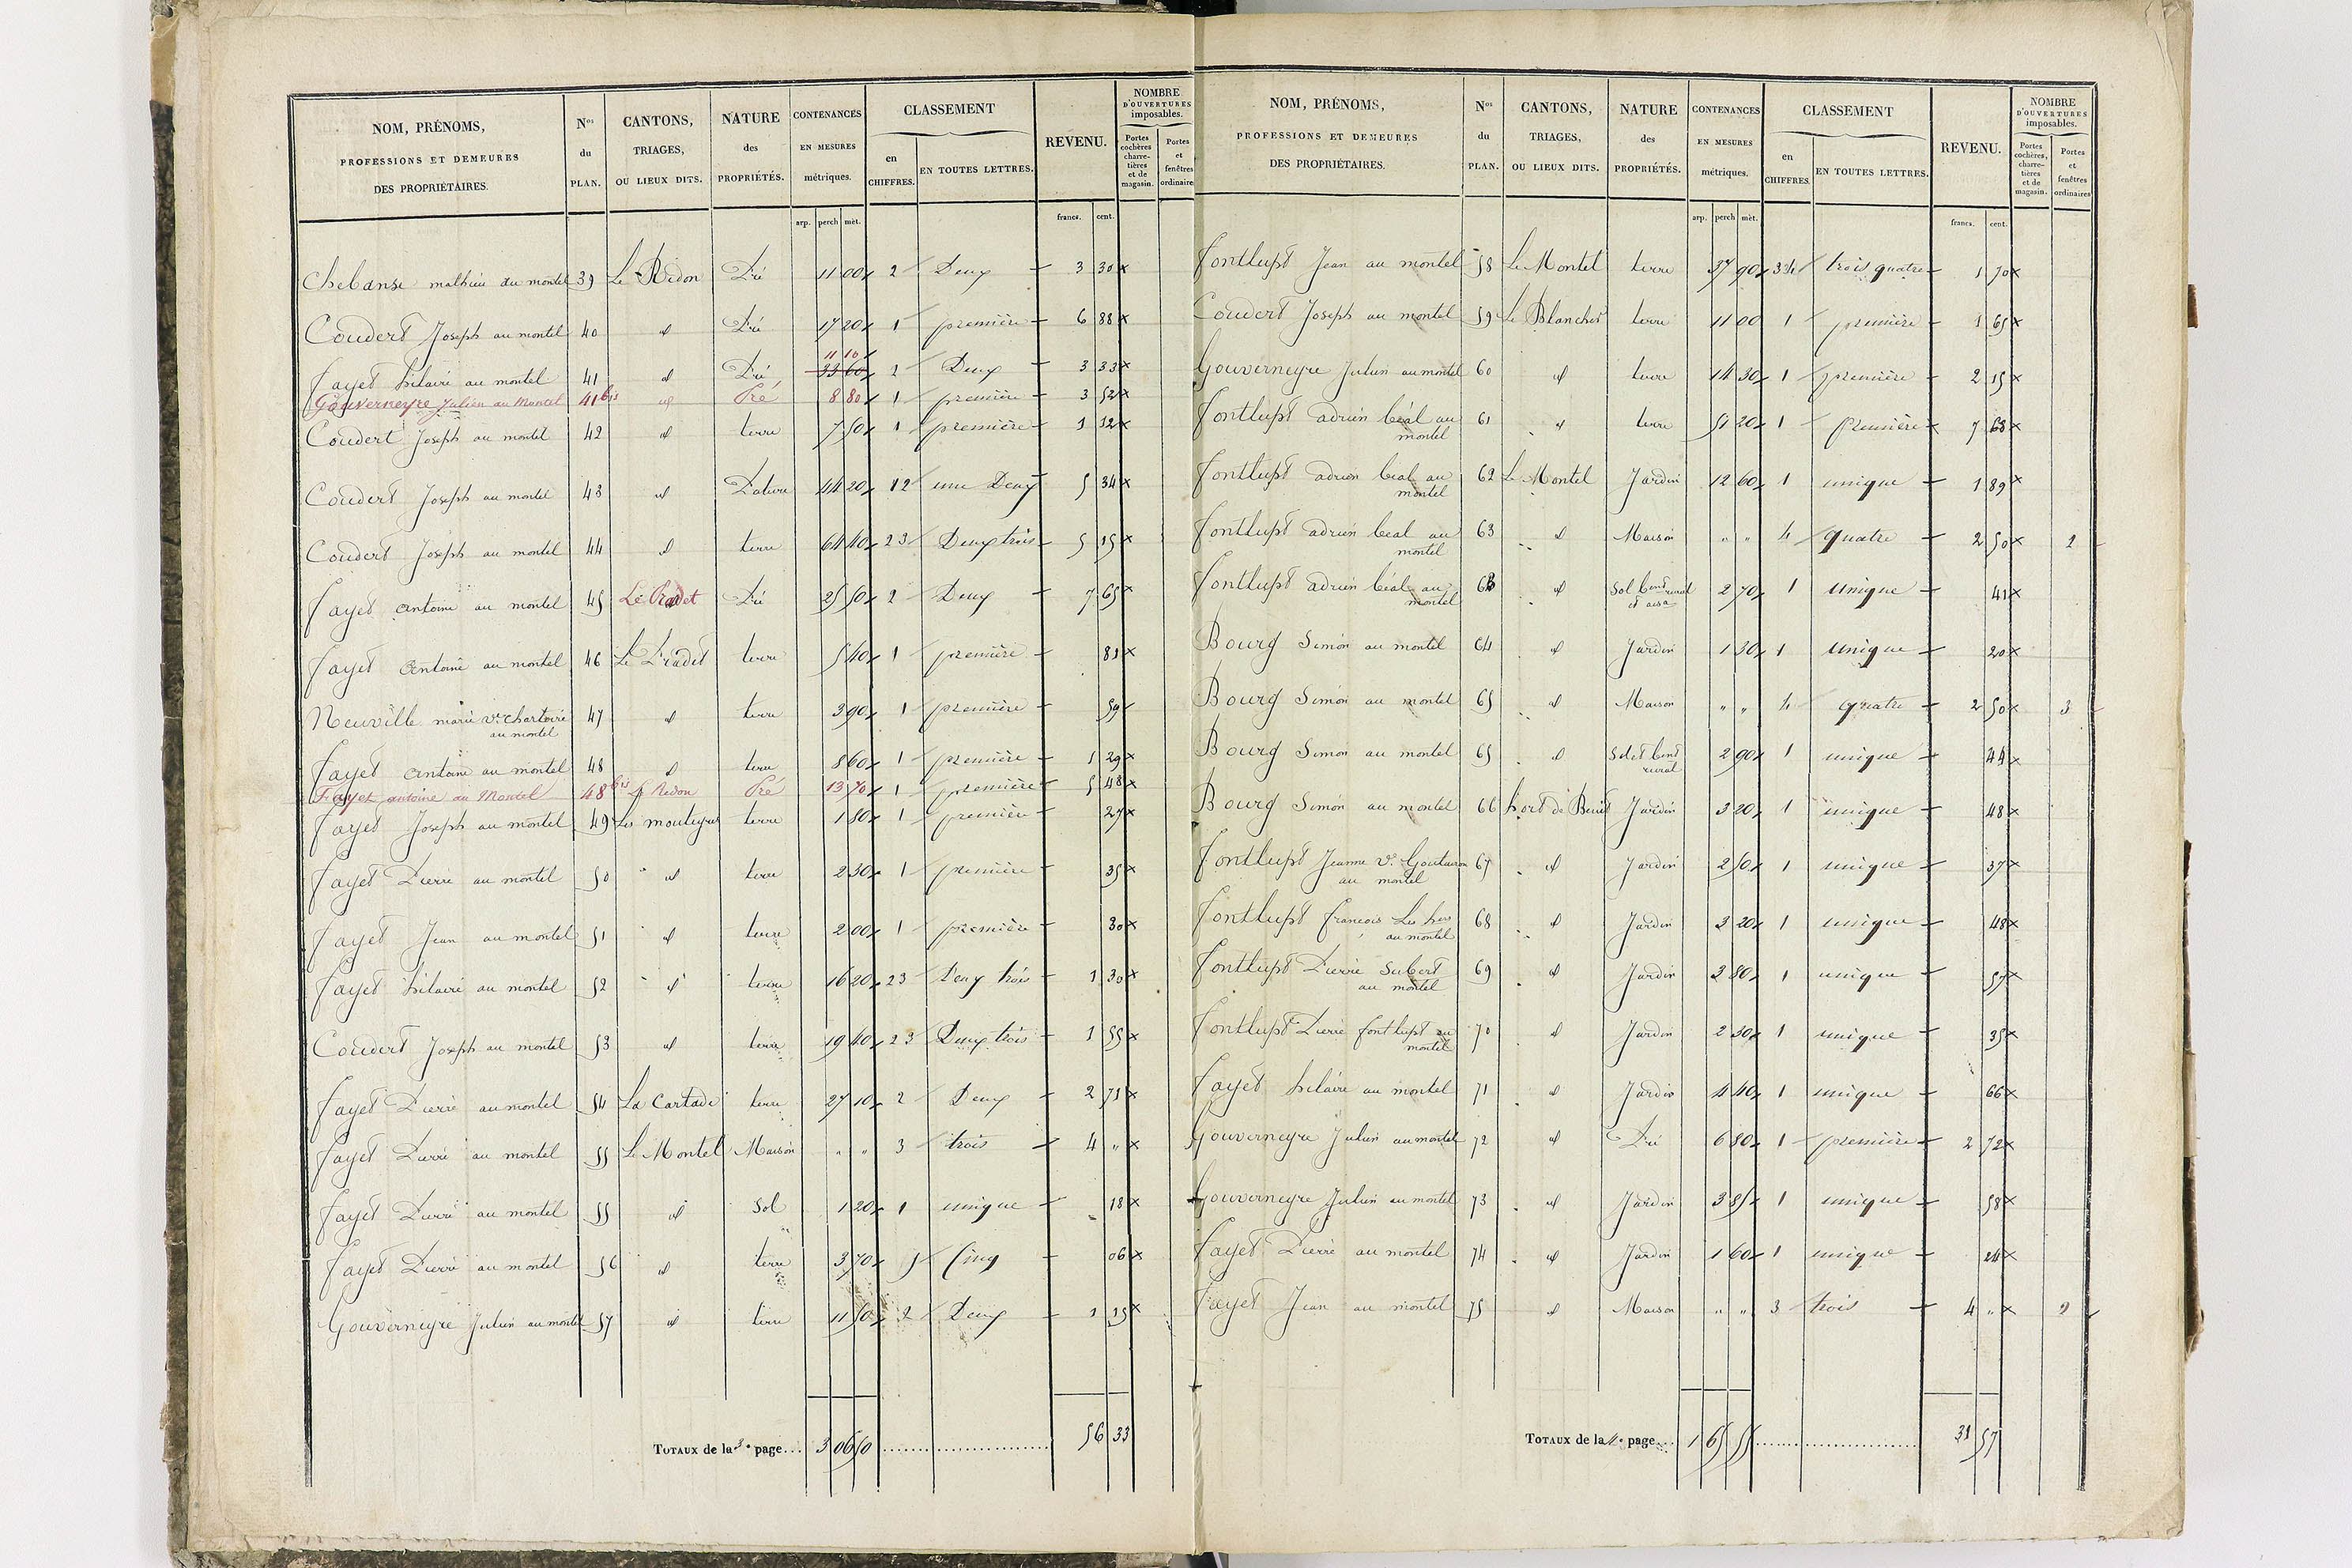 NOM, PRÉNOMS, PROFESSIONS ET DEMEURES DES PROPRIÉTAIRES. | Nos du PLAN. | CANTONS, TRIAGES, OU LIEUX DITS. | NATURE des PROPRIÉTÉS. | CONTENANCES EN MESURES métriques. | CLASSEMENT en CHIFFRES. | EN TOUTES LETTRES. | REVENU. | NOMBRE D'OUVERTURES imposables. Portes cochères, charretières et de magasin. | Portes et fenêtres ordinaires
arp. perch mèt. francs. cent.
Chebanse mathieu au montel 39 Le Redon Pré 11 00 2 Deux 3 30 x
Coudert Joseph au montel 40 id Pré 17 20 1 première 6 88 x
11 10
Fayet hilaire au montel 41 id Pré 33 60 2 Deux 3 33 x
Gouverneyre Julien au Montel 41 bis id Pré 8 80 1 première 3 52 x
Coudert Joseph au montel 42 id terre 7 50 1 première 1 12 x
Coudert Joseph au montel 43 id Pature 44 20 12 une Deux 5 34 x
Coudert Joseph au montel 44 id terre 64 40 23 Deux trois 5 15 x
Fayet antoine au montel 45 Le Pradet Pré 25 50 2 Deux 7 65 x
Fayet antoine au montel 46 Le Pradet terre 5 40 1 première 81 x
Neuville marie ve chartoire 47 id terre 3 90 1 première 59
au montel
Fayet antoine au montel 48 id terre 8 60 1 première 1 29 x
Fayet antoine au Montel 48 bis Le Redon Pré 13 70 1 première 5 48 x
Fayet Joseph au montel 49 terre 1 80 1 première 27 x
Fayet Pierre au montel 50 id terre 2 30 1 première 35 x
Fayet Jean au montel 51 id terre 2 00 1 première 30 x
Fayet hilaire au montel 52 id terre 16 20 23 Deux trois 1 30 x
Coudert Joseph au montel 53 id terre 19 40 23 Deux trois 1 55 x
Fayet Pierre au montel 54 La Cartade terre 27 10 2 Deux 2 71 x
Fayet Pierre au montel 55 Le Montel Maison " " 3 trois 4 " x
Fayet Pierre au montel 55 id Sol 1 20 1 unique 18 x
Fayet Pierre au montel 56 id terre 3 70 5 Cinq 06 x
Gouverneyre Julien au montel 57 id terre 11 50 2 Deux 1 15 x
TOTAUX de la 3e page... 3 06 50 56 33
NOM, PRÉNOMS, PROFESSIONS ET DEMEURES DES PROPRIÉTAIRES. | Nos du PLAN. | CANTONS, TRIAGES, OU LIEUX DITS. | NATURE des PROPRIÉTÉS. | CONTENANCES EN MESURES métriques. | CLASSEMENT en CHIFFRES. | EN TOUTES LETTRES. | REVENU. | NOMBRE D'OUVERTURES imposables. Portes cochères, charretières et de magasin. | Portes et fenêtres ordinaires
arp. perch mèt. francs. cent.
Fontlupt Jean au montel 58 Le Montel terre 37 90 34 trois quatre 1 90 x
Coudert Joseph au montel 59 Le Blanchet terre 11 00 1 première 1 65 x
Gouverneyre Julien au montel 60 id terre 14 30 1 première 2 15 x
Fontlupt adrien béal au 61 id terre 51 20 1 première 7 68 x
montel
Fontlupt adrien béal au 62 Le Montel Jardin 12 60 1 unique 1 89 x
montel
Fontlupt adrien béal au 63 id Maison " " 4 quatre 2 50 x 2
montel
Fontlupt adrien béal au 63 id Sol 2 70 1 unique 41 x
montel
Bourg Simon au montel 64 id Jardin 1 30 1 unique 20 x
Bourg Simon au montel 65 id Maison " " 4 quatre 2 50 x 3
Bourg Simon au montel 65 id Sol et 2 90 1 unique 44 x
rural
Bourg Simon au montel 66 Jardin 3 20 1 unique 48 x
Fontlupt Jeanne ve 67 id Jardin 2 50 1 unique 37 x
au montel
Fontlupt francois 68 id Jardin 3 20 1 unique 48 x
au montel
Fontlupt Pierre Subert 69 id Jardin 3 80 1 unique 57 x
au montel
Fontlupt Pierre fontlupt au 70 id Jardin 2 30 1 unique 35 x
montel
Fayet hilaire au montel 71 id Jardin 4 40 1 unique 66 x
Gouverneyre Julien au montel 72 id Pré 6 80 1 première 2 72 x
Gouverneyre Julien au montel 73 id Jardin 3 85 1 unique 58 x
Fayet Pierre au montel 74 id Jardin 1 60 1 unique 24 x
Fayet Jean au montel 75 id Maison " " 3 trois 4 " x 2
TOTAUX de la 4e page... 1 65 55 31 57